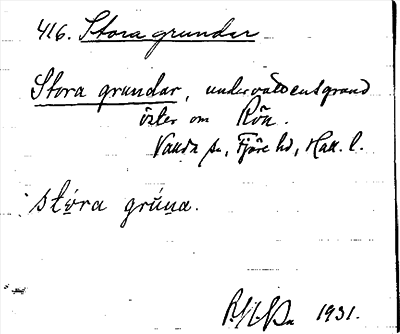 416. Stora grundar
Stora grundar, undervattensgrund
öster om Rön.
Värö sn, Fjäre hd, Hall. l.
stóra grúna.
1931.